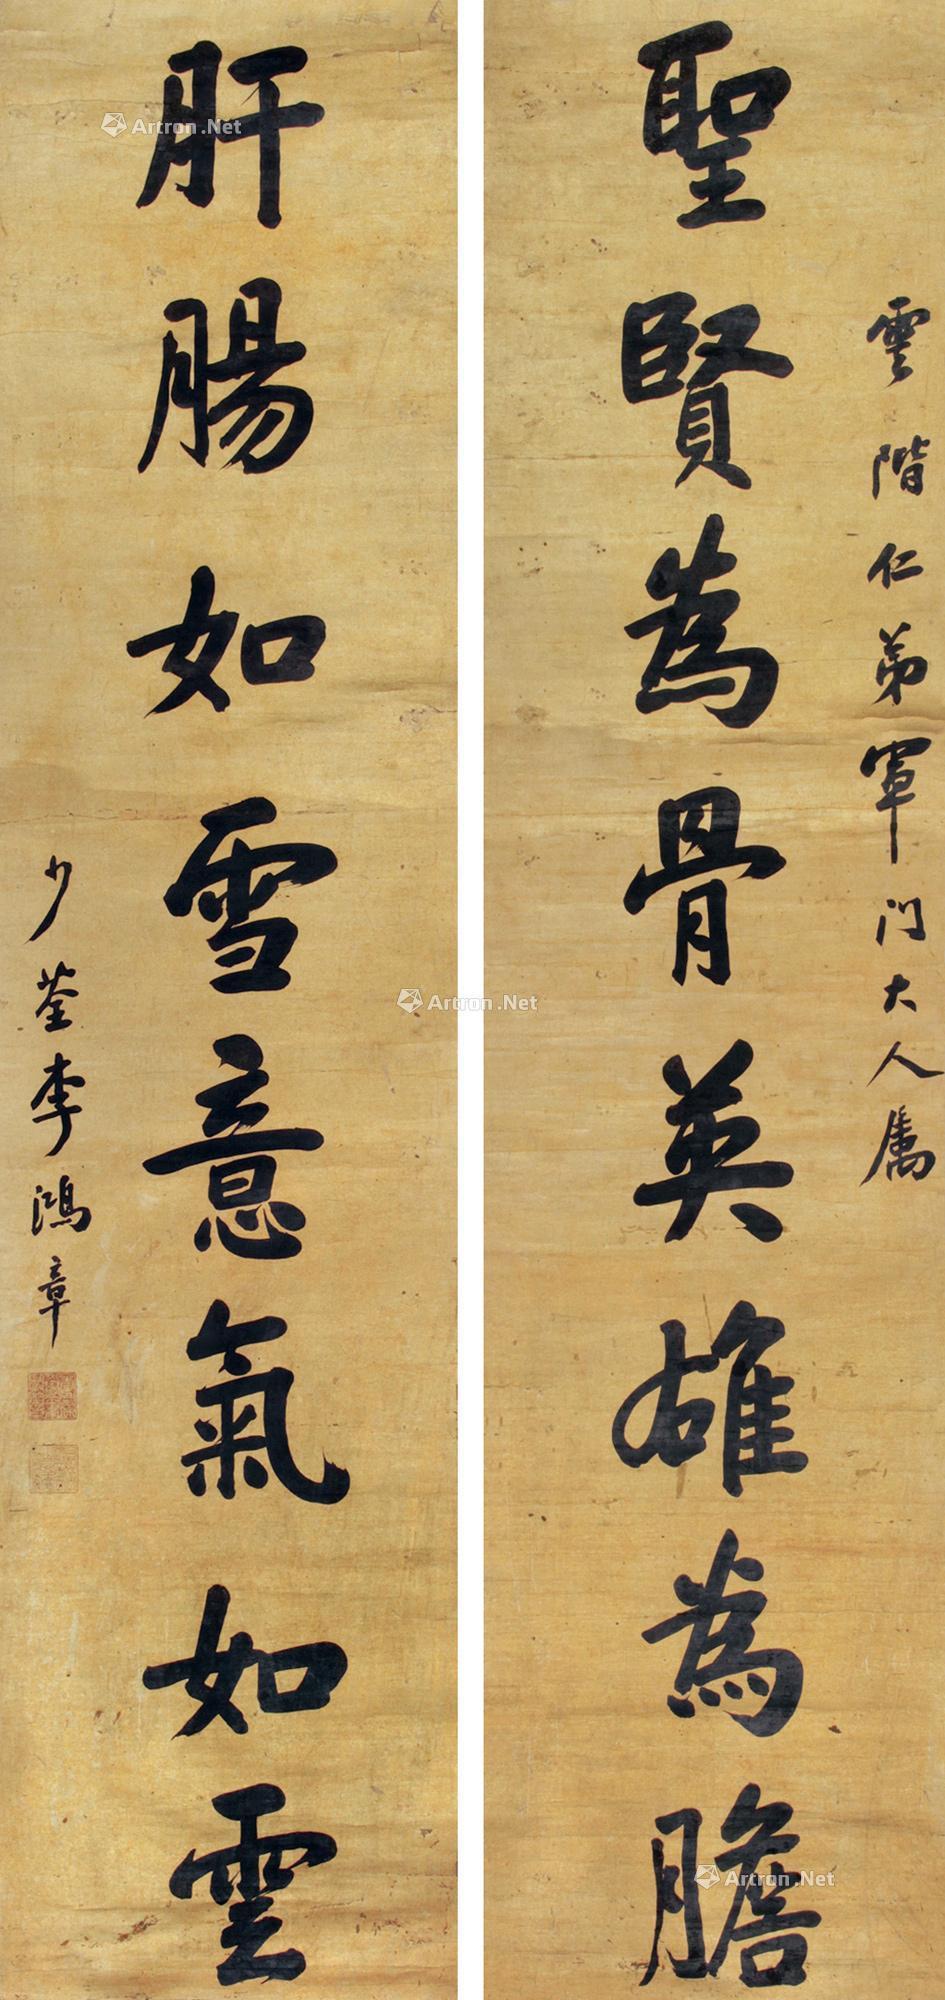 雲階仁弟軍门大人属
聖賢為骨英雄為膽
肝腸如雪意氣如雲
少荃李鴻章
Artron.Net
Artron.Net
Artron.Net